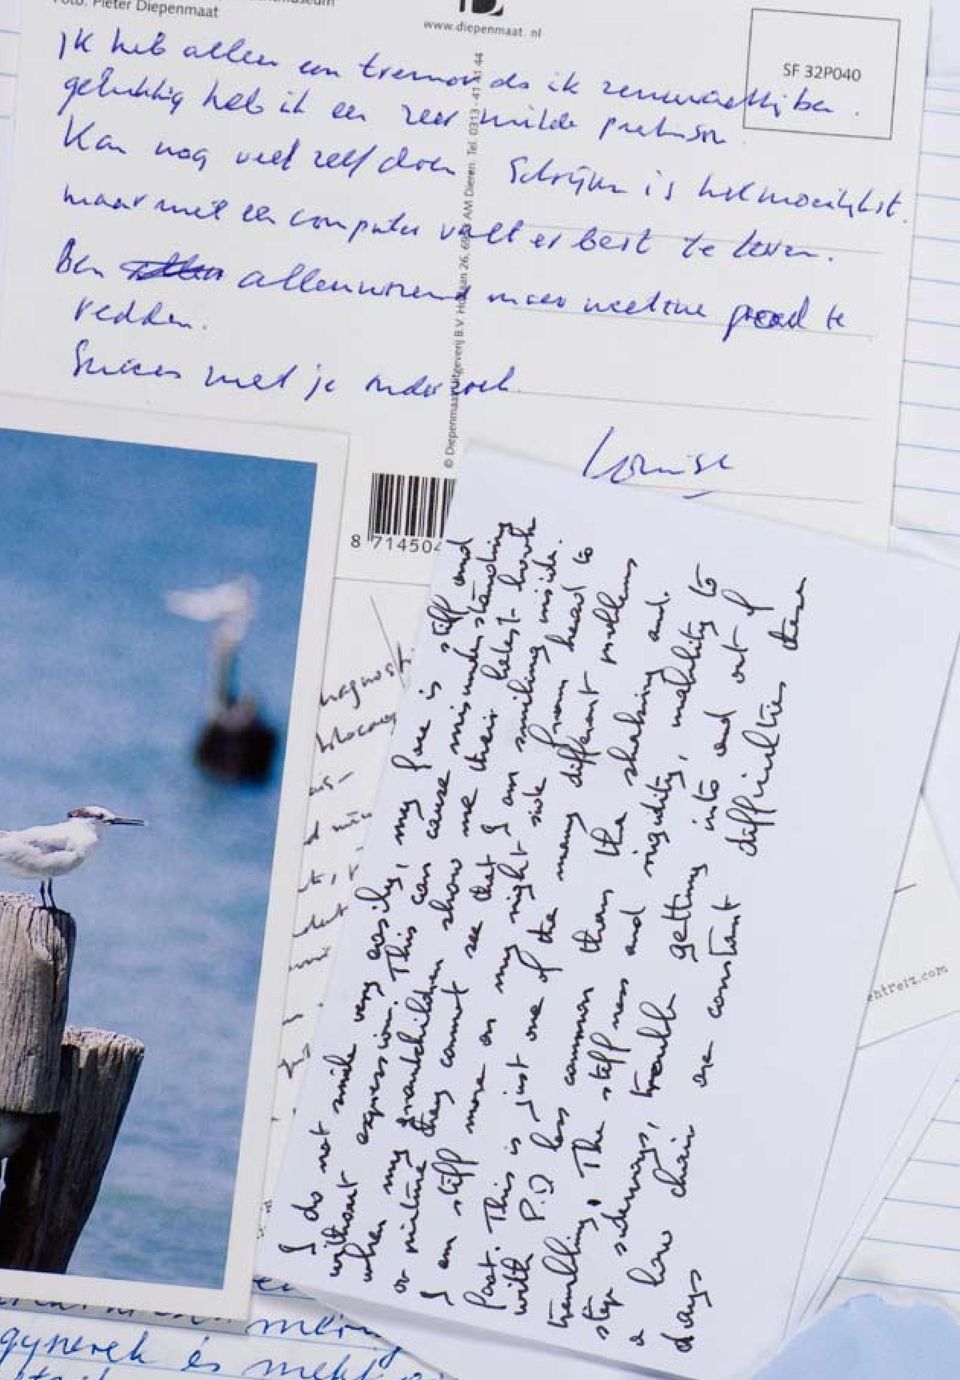 Foto: Pieter Diepenmaat
www.diepenmaat.nl
SF 32P040
Ik heb alleen een tremor als ik zenuwachtig ben.
gelukkig heb ik een zeer milde parkinson
Kan nog veel zelf doen Schrijven is het moeilijkst.
maar met een computer valt er best te leven.
Ben allenwonend maar weet me goed te
redden.
Succes met je onderzoek
Louise
© Diepenmaat Uitgeverij B.V. 26, AM Dieren. Tel. 0313 - 41 44
8 714504
I do not smile very easily, my face is stiff and
without expression. This can cause misunderstanding
when my grandchildren show me their latest book
or picture they cannot see that I am smiling inside.
I am stiff more on my right side from head to
foot. This is just one of the many different problems
with P.D less common than the shaking and
trembling. The stiffness and rigidity, inability to
step sideways, trouble getting into and out of
a low chair are constant difficulties these
days
gynerek és